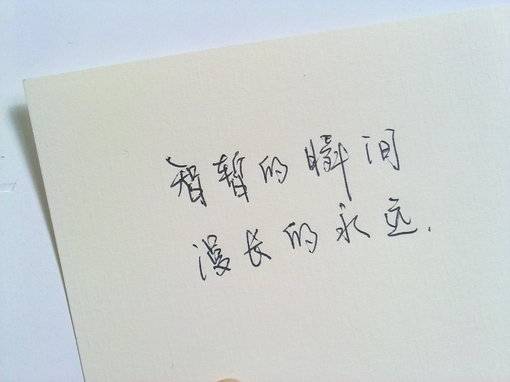 短暂的瞬间
漫长的永远.